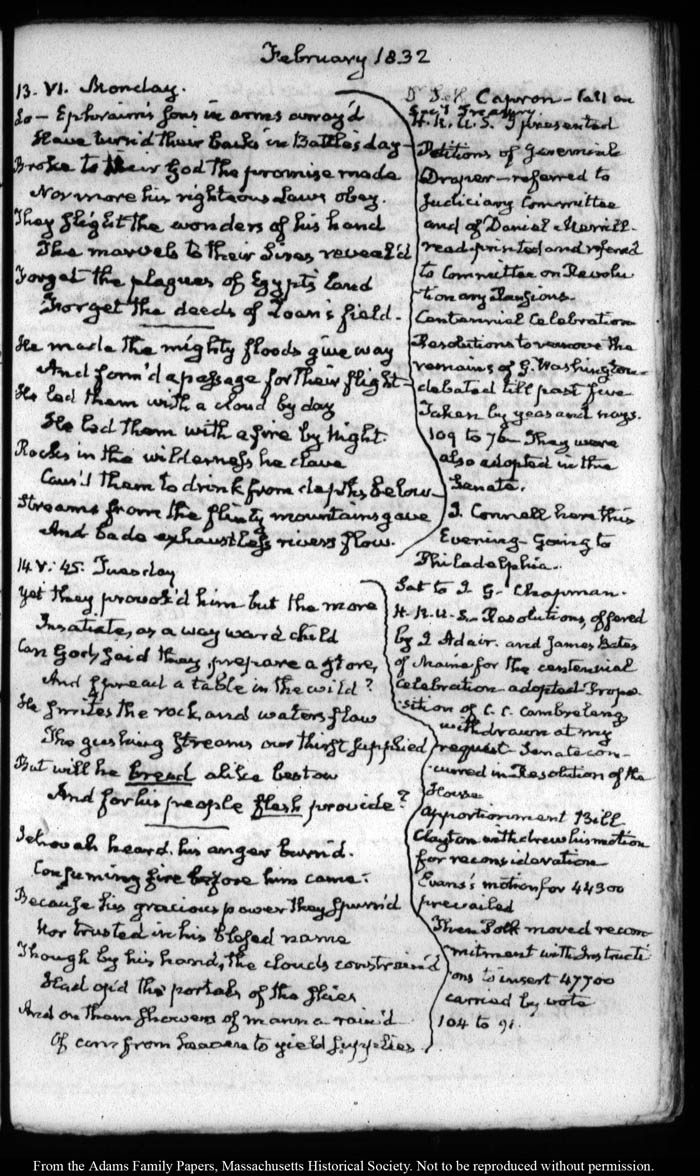 February 1832
13. VI. Monday.
Lo — Ephraim's sons in arms array'd
Have turn'd their backs in Battle's day—
Broke to their God the promise made
Nor more his righteous Laws obey.
They slight the wonders of his hand
The marvels to their Sires reveal'd
Forget the plagues of Egypt's land
Forget the deeds of Zoan's field.
He made the mighty floods give way
And form'd a passage for their flight—
He led them with a cloud by day
He led them with a fire by Night.
Rocks in the wilderness he clave
Caus'd them to drink from depths below—
Streams from the flinty mountains gave
And bade exhaustless rivers flow.
Dr Capron — call on
Secy Treasury
H. R. U. S. I presented
Petitions of Jeremiah
Draper — referred to
Judiciary Committee
and of Daniel Merrill.
read printed and referred
to Committee on Revolu
tionary Pensions.
Centennial Celebration
Resolutions to remove the
remains of G. Washington—
debated till past five
Taken by yeas and nays.
109 to 76— They were
also adopted in the
Senate.
J. Connell here this
Evening— Going to
Philadelphia.
14. V: 45. Tuesday
Yet they provok'd him but the more
Insatiate, as a wayward child
Can God, said they, prepare a store,
And spread a table in the wild?
He smites the rock, and waters flow
The gushing streams our thirst supplied
But will he bread alike bestow
And for his people flesh provide?
Jehovah heard. his anger burn'd.
Consuming fire before him came:
Because his gracious power they spurn'd
Nor trusted in his blessed name
Though by his hand, the clouds constrain'd
Had op'd the portals of the skies
And on them showers of manna rain'd
Of corn from heaven to yield supplies
Sat to J. G. Chapman.
H. R. U. S. Resolutions, offered
by J Adair. and James Bates
of Maine for the centennial
Celebration adopted. Propo
sition of C. C. Cambreleng
withdrawn at my
request — Senate con
curred in Resolution of the
House
Apportionment Bill
Clayton withdrew his motion
for reconsideration
Evans's motion for 44300
prevailed
Then Polk moved recom
mitment with Instructi
ons to insert 47700
carried by vote
104 to 91.
From the Adams Family Papers, Massachusetts Historical Society. Not to be reproduced without permission.